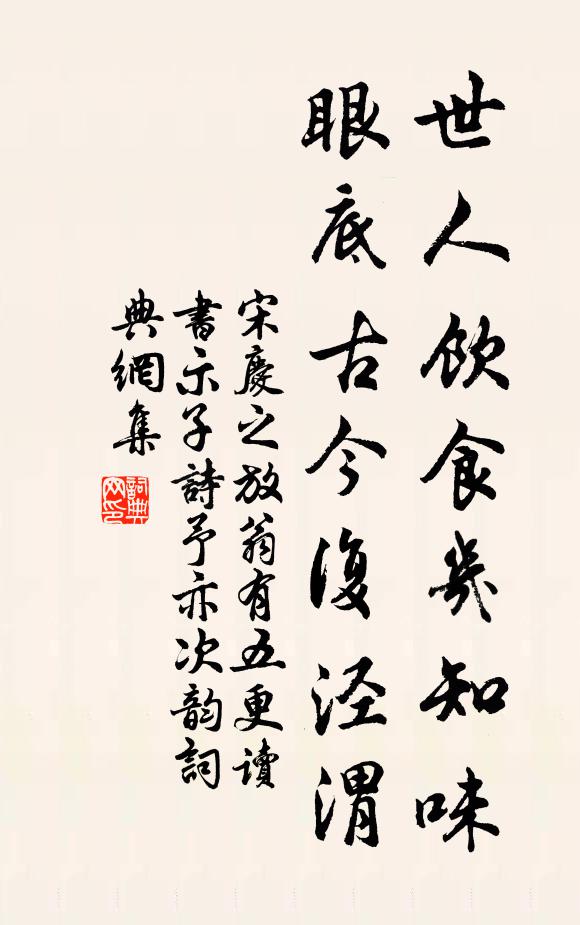 世人飲食幾知味
眼底古今復涇渭
宋慶之放翁有五更讀
書示子詩予亦次韵詞
典網集
詞典網印